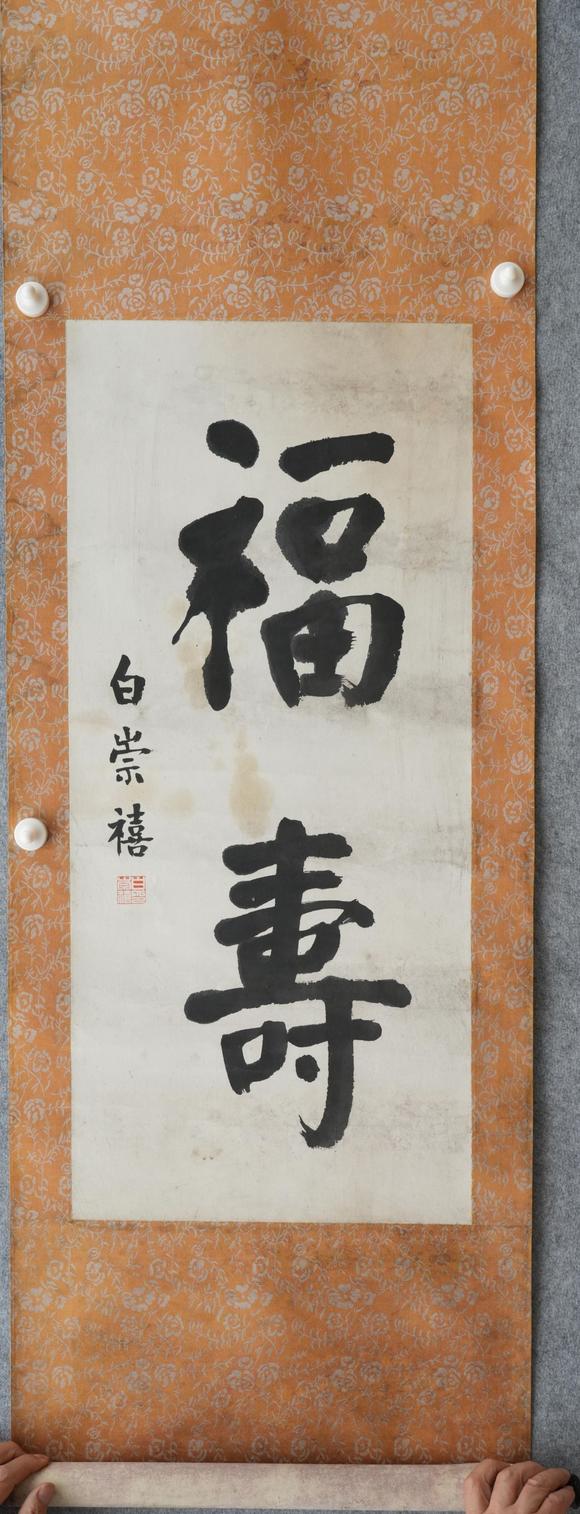 福壽
白崇禧